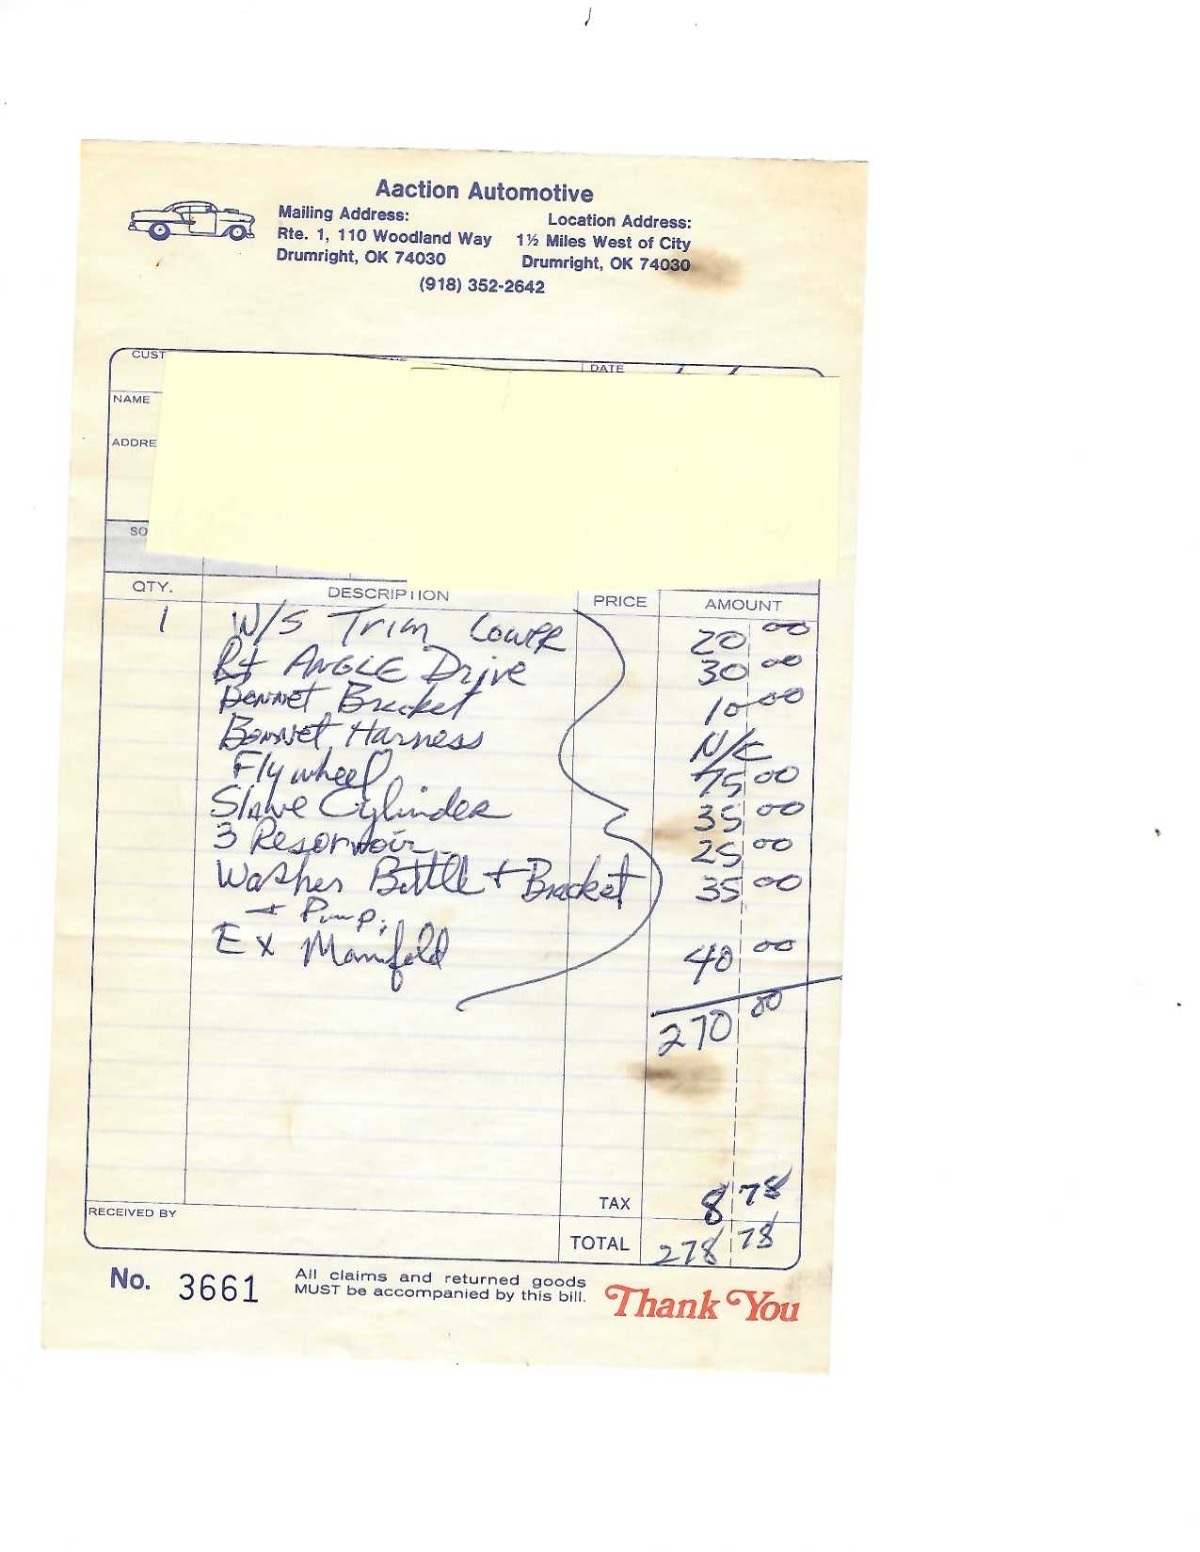 Aaction Automotive
Mailing Address: Location Address:
Rte. 1, 110 Woodland Way 1½ Miles West of City
Drumright, OK 74030 Drumright, OK 74030
(918) 352-2642
CUST DATE
NAME
ADDRE
SO
QTY. DESCRIPTION PRICE AMOUNT
1 W/S Trim Lower 20 00
Rt ANGLE Drive 30 00
Bonnet Bracket 10 00
Bonnet Harness N/C
Flywheel 75 00
Slave Cylinder 35 00
3 Resorvoir 25 00
Washer Bottle + Bracket 35 00
+ Pump.
Ex Manifold 40 00
270 00
TAX 8 78
RECEIVED BY
TOTAL 278 78
No. 3661 All claims and returned goods
MUST be accompanied by this bill. Thank You